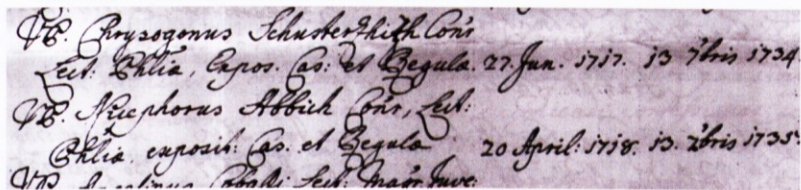 VP. Chrysogonus Schusterschith Con̄r
Lect: Phliæ, Expos. Cas: et Regulæ. 27. Jun. 1717. 13 7bris 1734.
VP. Nicephorus Abbich Con̄r, Lect:
Phliæ. exposit: Cas. et Regulæ 20 April: 1718. 13. Xbris 1735.
VP. Lect: Maj̄r Juve: